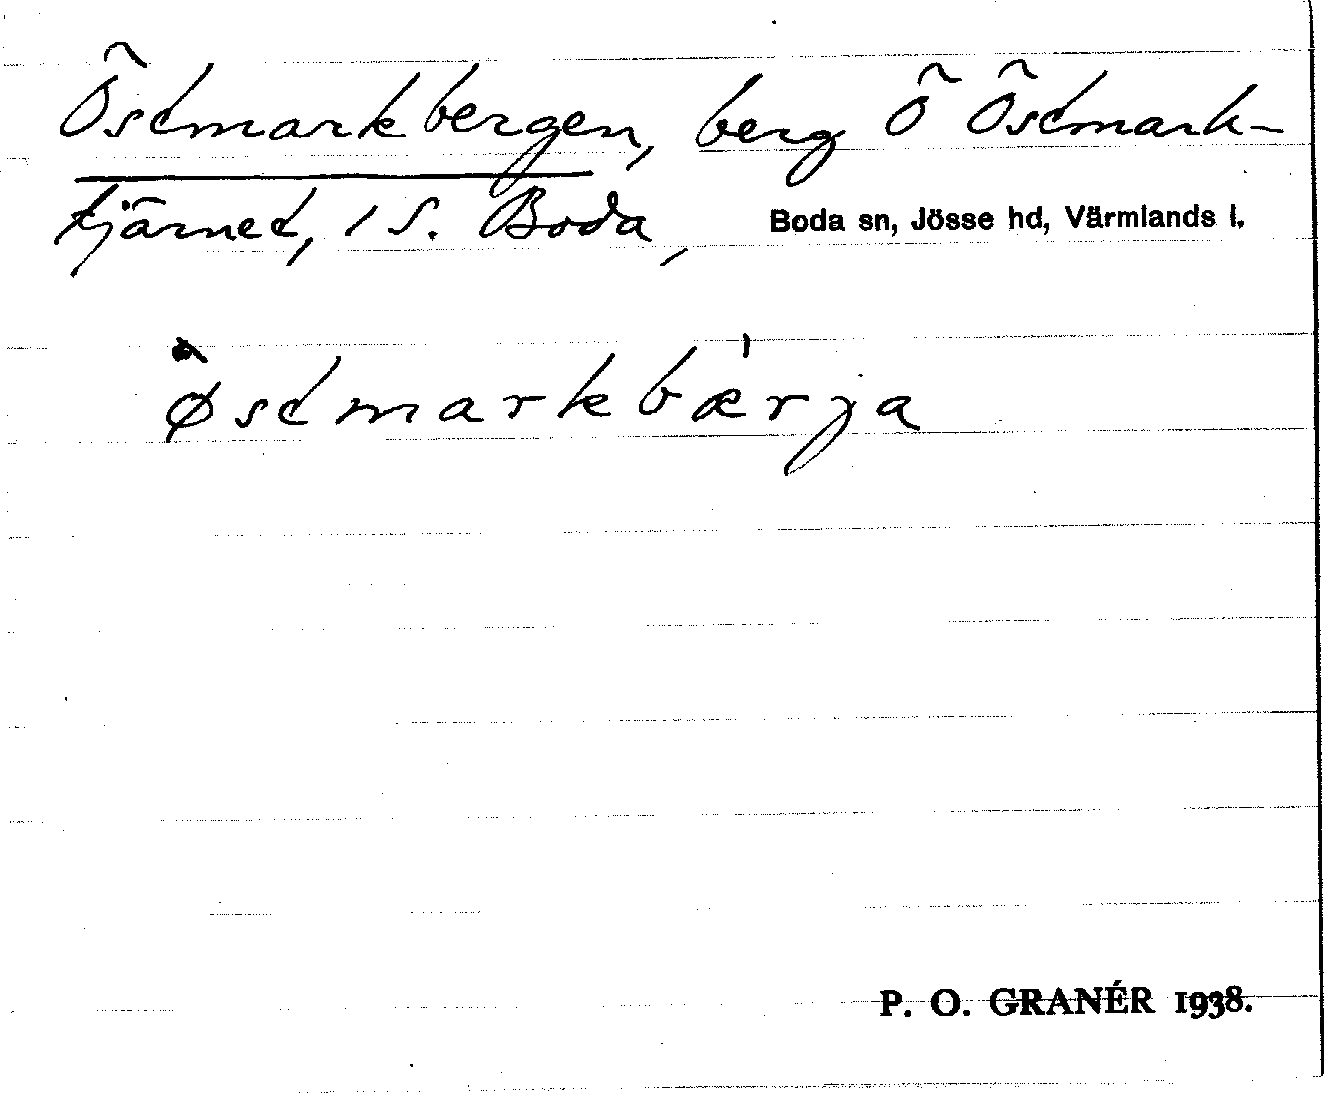 Östmarkbergen, berg Ö Östmark-
tjärnet, i S. Boda, Boda sn, Jösse hd, Värmlands l.
østmarkbærja
P. O. GRANÉR 1938.